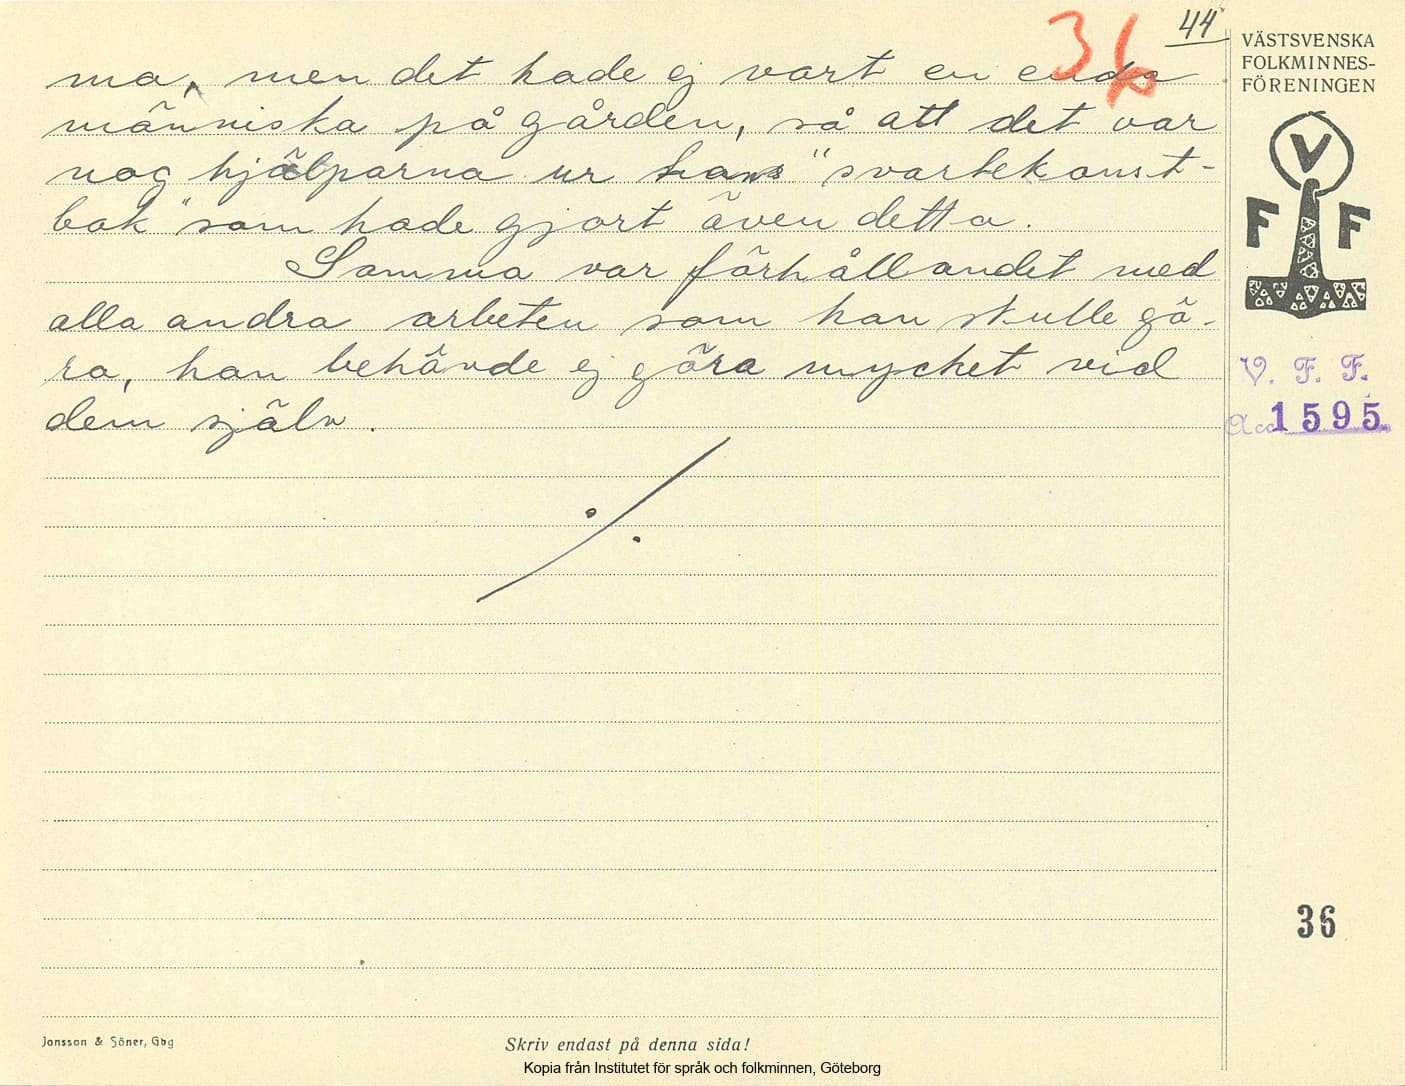 44
36
VÄSTSVENSKA
FOLKMINNES-
FÖRENINGEN
V
F F
V. F. F.
Acc 1595.
ma, men det hade ej vart en enda
människa på gården, så att det var
nog hjälparna ur hans "svartekonst-
bok" som hade gjort även detta.
Samma var förhållandet med
alla andra arbeten som han skulle gö-
ra, han behövde ej göra mycket vid
dem själv.
./.
36
Jonsson & Söner, Gbg
Skriv endast på denna sida!
Kopia från Institutet för språk och folkminnen, Göteborg